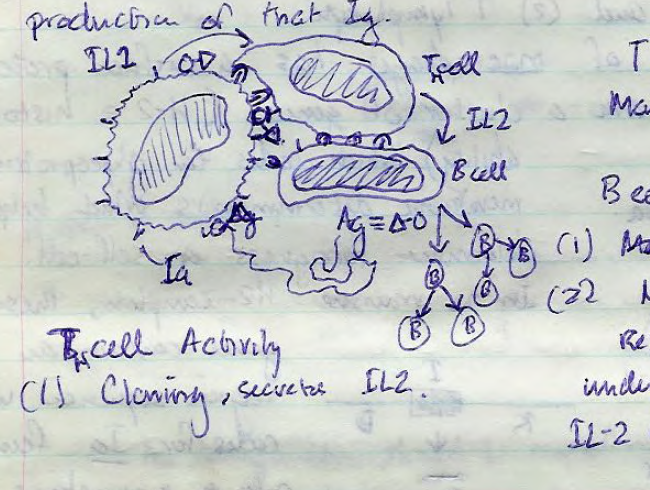 production of that Ig.
IL1
T_H cell
IL2
B cell
Ag
Ag = Δ-O
Ia
B B B
B B B
T_H cell Activity
(1) Cloning, secretes IL2.
T
Ma
B ce
(1) Ma
(2) M
Re
unde
IL-2